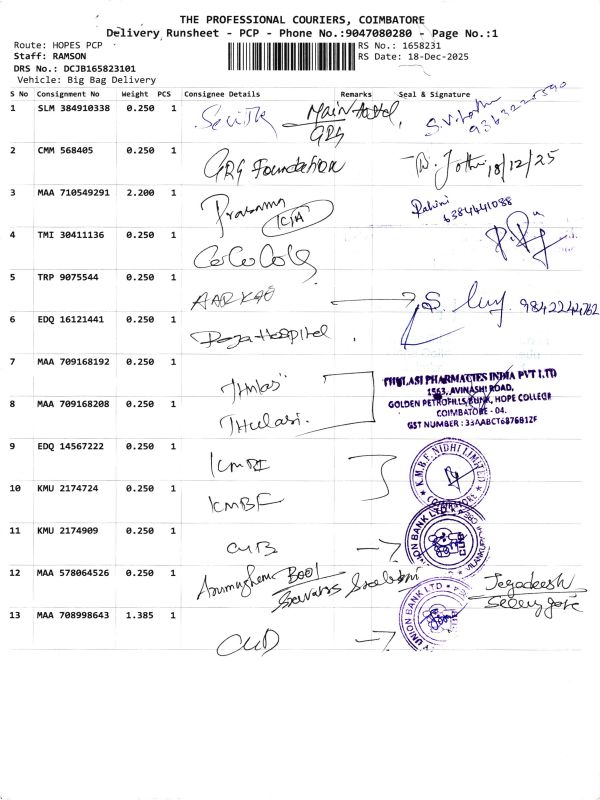 THE PROFESSIONAL COURIERS, COIMBATORE
Delivery Runsheet - PCP - Phone No.:9047080280 - Page No.:1
Route: HOPES PCP
RS No.: 1658231
Staff: RAMSON
RS Date: 18-Dec-2025
DRS No.: DCJB165823101
Vehicle: Big Bag Delivery
S No Consignment No Weight PCS Consignee Details Remarks Seal & Signature
1 SLM 384910338 0.250 1 Main Hostel, GRG
2 CMM 568405 0.250 1 GRG Foundation 18/12/25
3 MAA 710549291 2.200 1 Prasanna 6384441088
4 TMI 30411136 0.250 1
5 TRP 9075544 0.250 1 AARKAY 9842244762
6 EDQ 16121441 0.250 1 Hospital
7 MAA 709168192 0.250 1 THulasi
8 MAA 709168208 0.250 1 THulasi.
THULASI PHARMACIES INDIA PVT LTD
1563, AVINASHI ROAD,
GOLDEN PETROFILLS BUNK, HOPE COLLEGE
COIMBATORE - 04.
GST NUMBER : 33AABCT6876B1ZF
9 EDQ 14567222 0.250 1 KMBF
K.M.B.F. NIDHI LIMITED
COIMBATORE
10 KMU 2174724 0.250 1 KMBF
11 KMU 2174909 0.250 1 CUB
UNION BANK LTD
12 MAA 578064526 0.250 1 Arumughem Jegadeesh
UNION BANK LTD
13 MAA 708998643 1.385 1 CUB